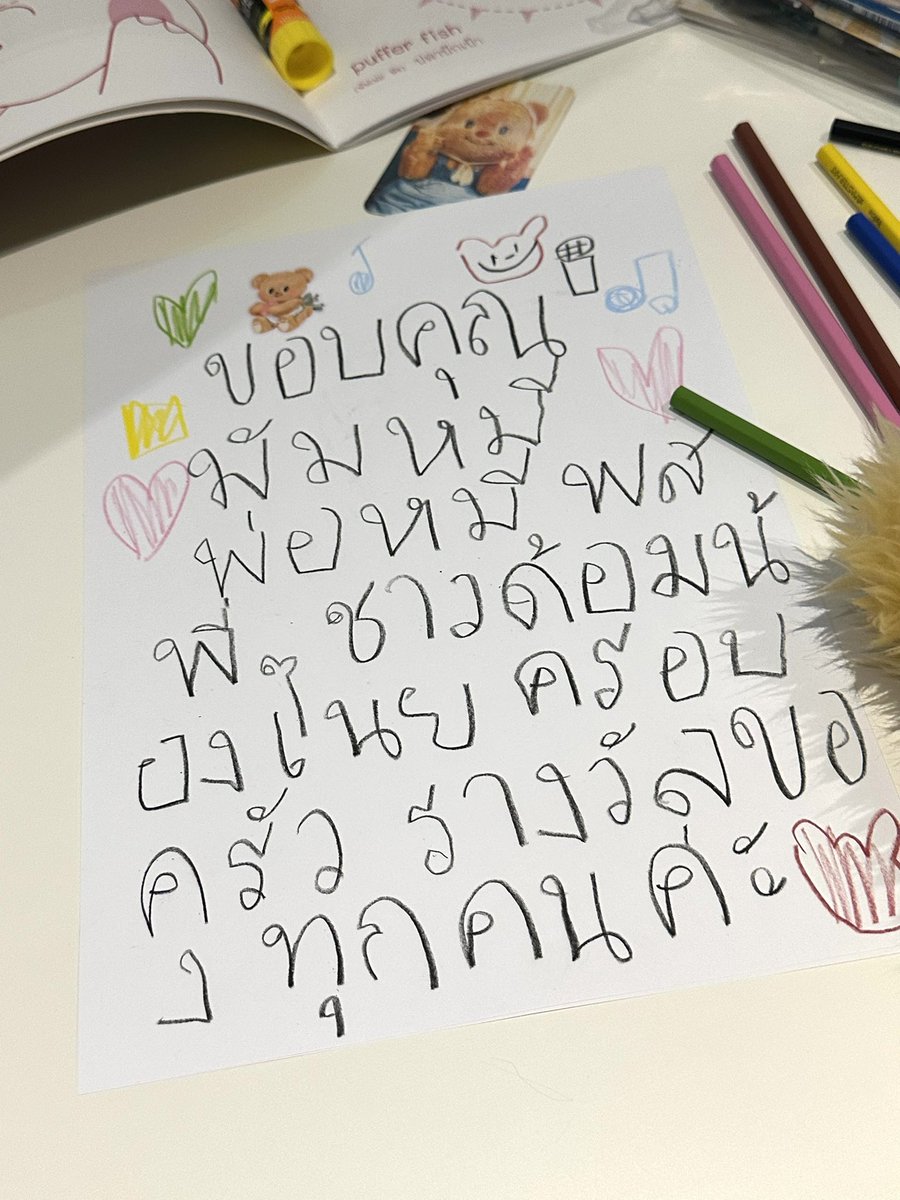 puffer fish
ขอบคุณ
มัมหมี
พ่อหมี พส
พี่ ชาวด้อมน้
องเนย ครอบ
ครัว รางวัลขอ
ง ทุกคน ค่ะ